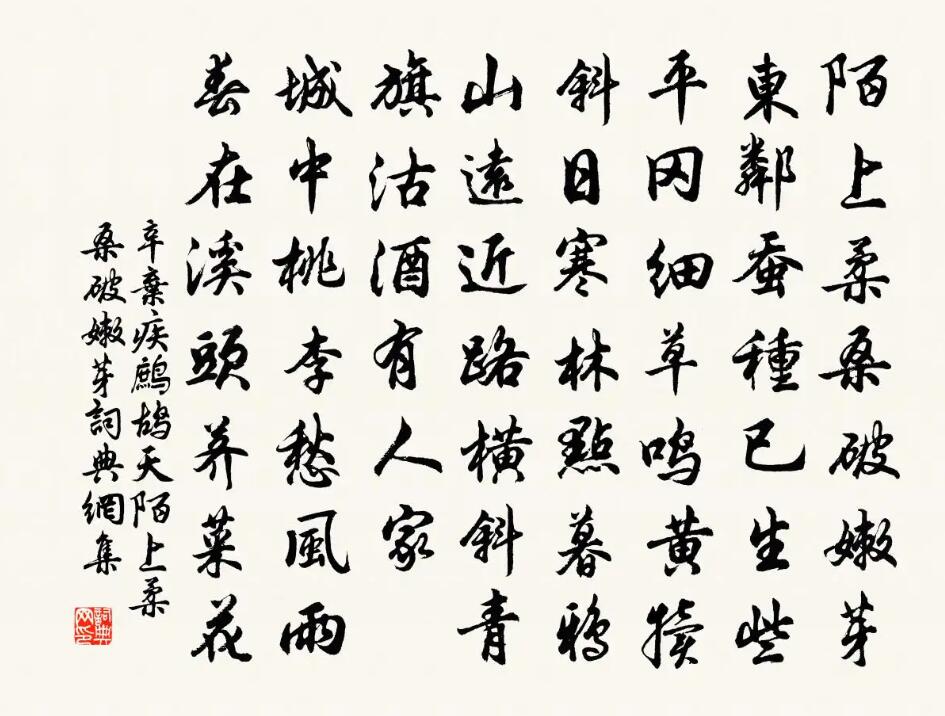 陌上柔桑破嫩芽
東鄰蚕種已生些
平冈细草鸣黄犊
斜日寒林點暮鴉
山遠近路横斜青
旗沽酒有人家
城中桃李愁風雨
春在溪頭荠菜花
辛棄疾鷓鸪天陌上柔
桑破嫩芽詞典網集
詞典网印